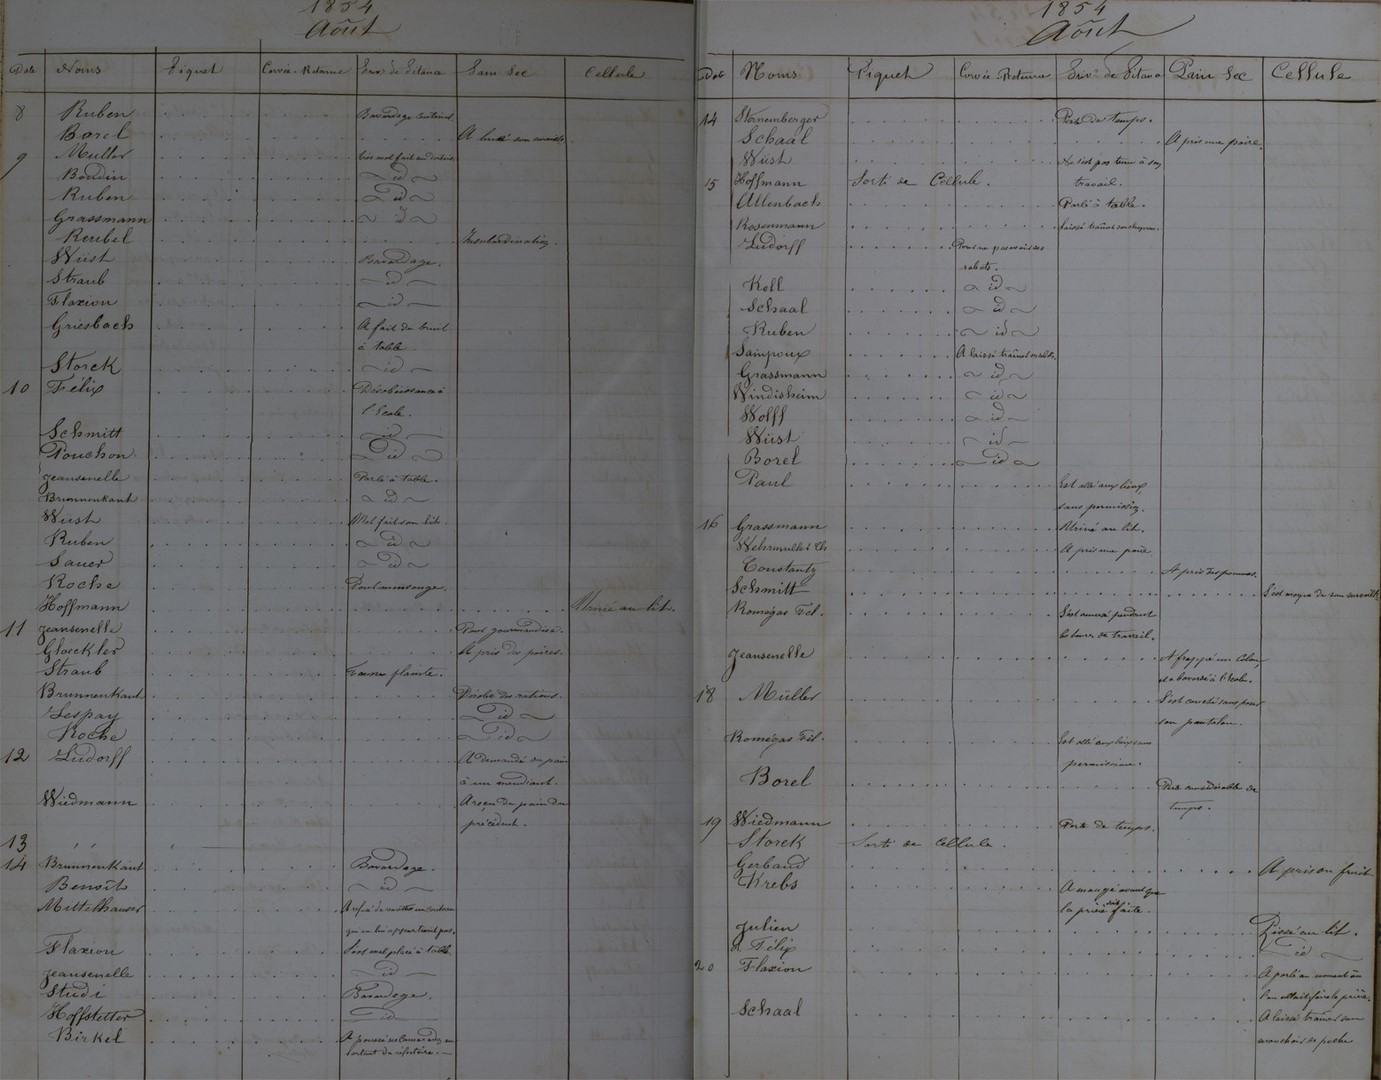 1854
Août
Date Noms Piquet Corvée-Retenue Priv. de Pitance Pain Sec Cellule
8 Ruben Bavardage continuel
Borel A
9 Muller
Boudin id
Ruben id
Grassmann id
Reubel Insubordination.
Wüst Bavardage.
Straub id
Flaxion id
Griesbach A fait du bruit
à table.
Storck id
10 Félix Désobéissance à
l'Ecole.
Schmitt id
Pouchon id
Jeansenelle Parlé à table.
Brunnenkant id
Wüst Mal fait son lit.
Ruben id
Sauer id
Roche Pour un mensonge.
Hoffmann Uriné au lit.
11 Jeansenelle Pour gourmandise.
Gloeckler A pris des poires.
Straub Fausse plainte.
Brunnenkant Dérobé des rations.
Lespay id
Roche id
12 Ludorff A demandé du pain
à un mendiant.
Wiedmann A reçu du pain du
précédent.
13
14 Brunnenkant Bavardage.
Benoît id
Mittelhauser
qui ne lui appartenait pas.
Flaxion S'est mal placé à table
Jeansenelle id
Studi Bavardage.
Hoffstetter id
Birkel A poussé ses camarades en
sortant du réfectoire.
1854
Août
Date Noms Piquet Corvée-Retenue Priv. de Pitance Pain Sec Cellule
14 Perte de temps.
Schaal A pris une poire.
Wüst Ne s'est pas tenu à son
15 Hoffmann Sorti de Cellule. travail.
Allenbach Parlé à table.
Rosenmann Laissé traîner son chapeau.
Ludorff
sabots.
Koll id
Schaal id
Ruben id
Sainpoux A laissé traîner ses sabots.
Grassmann id
Windisheim id
Wolff id
Wüst id
Borel id
Paul Est allé aux lieux,
sans permission.
16 Grassmann Uriné au lit.
A pris une poire
Constantz A pris des pommes.
Schmitt S'est moqué de son surveillt.
Romégas Fél. S'est amusé pendant
les heures de travail.
Jeansenelle A frappé un Colon,
et a bavardé à l'école.
18 Müller S'est couché sans poser
son pantalon.
Romégas Fél. Est allé aux lieux sans
permission.
Borel Perte considérable de
temps.
19 Wiedmann Perte de temps.
Storck Sorti de Cellule.
Gerband A pris un fruit
Krebs A mangé avant que
la prière soit faite.
Julien Pissé au lit.
Félix id
20 Flaxion A parlé au moment où
l'on allait faire la prière.
Schaal A laissé traîner son
mouchoir de poche